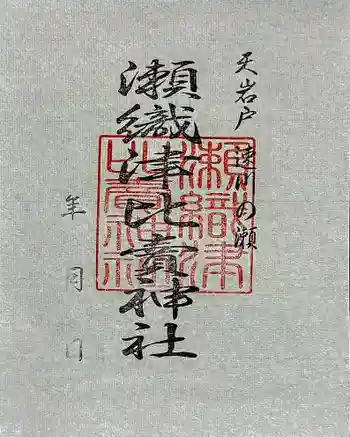 天岩戸 速川の瀬
瀬織津比賣神社
年 月 日
瀬織津
比賣神
社